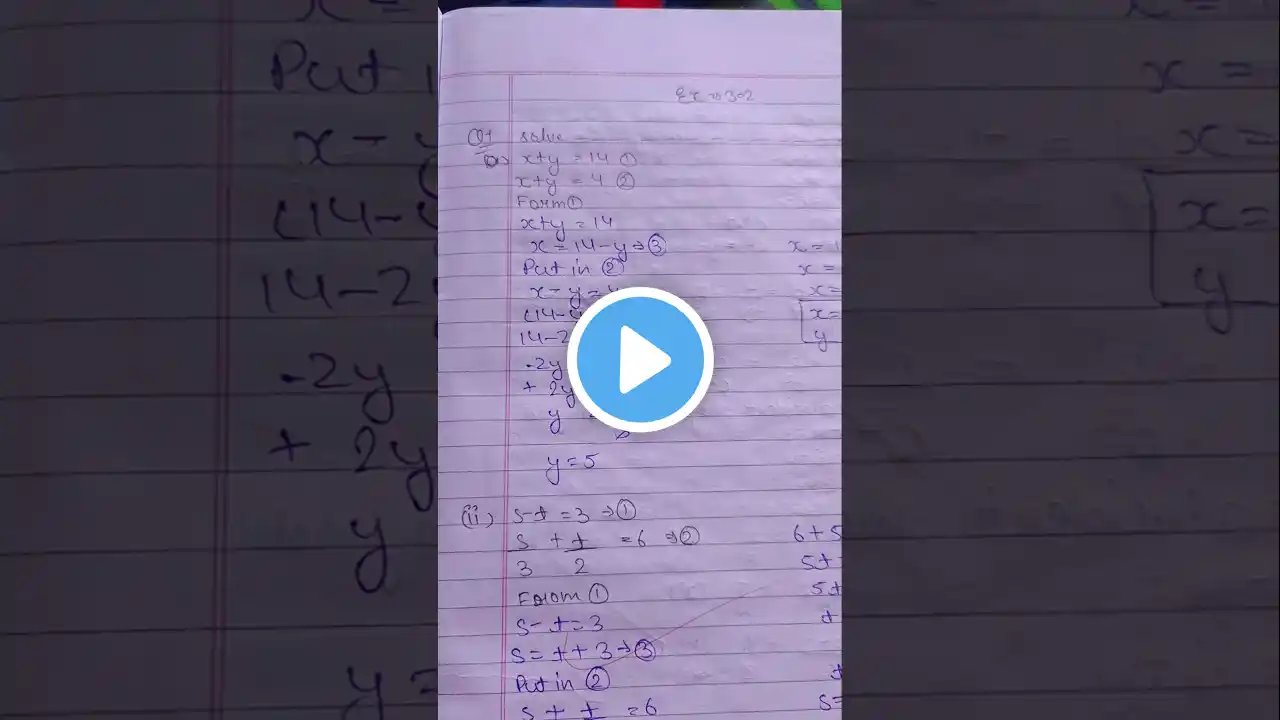 Ex → 3.2
Q1 solve
x+y = 14 ①
x+y = 4 ②
Form ①
x+y = 14
x = 14-y → ③
Put in ②
x-y = 4
(14-
14-2
-2y
+ 2y
y
y = 5
x = 1
x =
x =
x =
y
(ii) s-t = 3 → ①
s + t = 6 → ②
3 2
From ①
s-t = 3
s = t + 3 → ③
Put in ②
s + t = 6
6+5
5t
5t
t
t
s=
Put i
x-y
(14-y
14-2
-2y
+ 2y
y
y =
x =
x =
x =
y